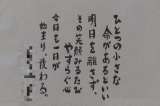 ひとつの小さな
命があるといい
明日を離さず、
その笑顔みるたび
やすらぐ心
今日も一日が
始まり、終わる。